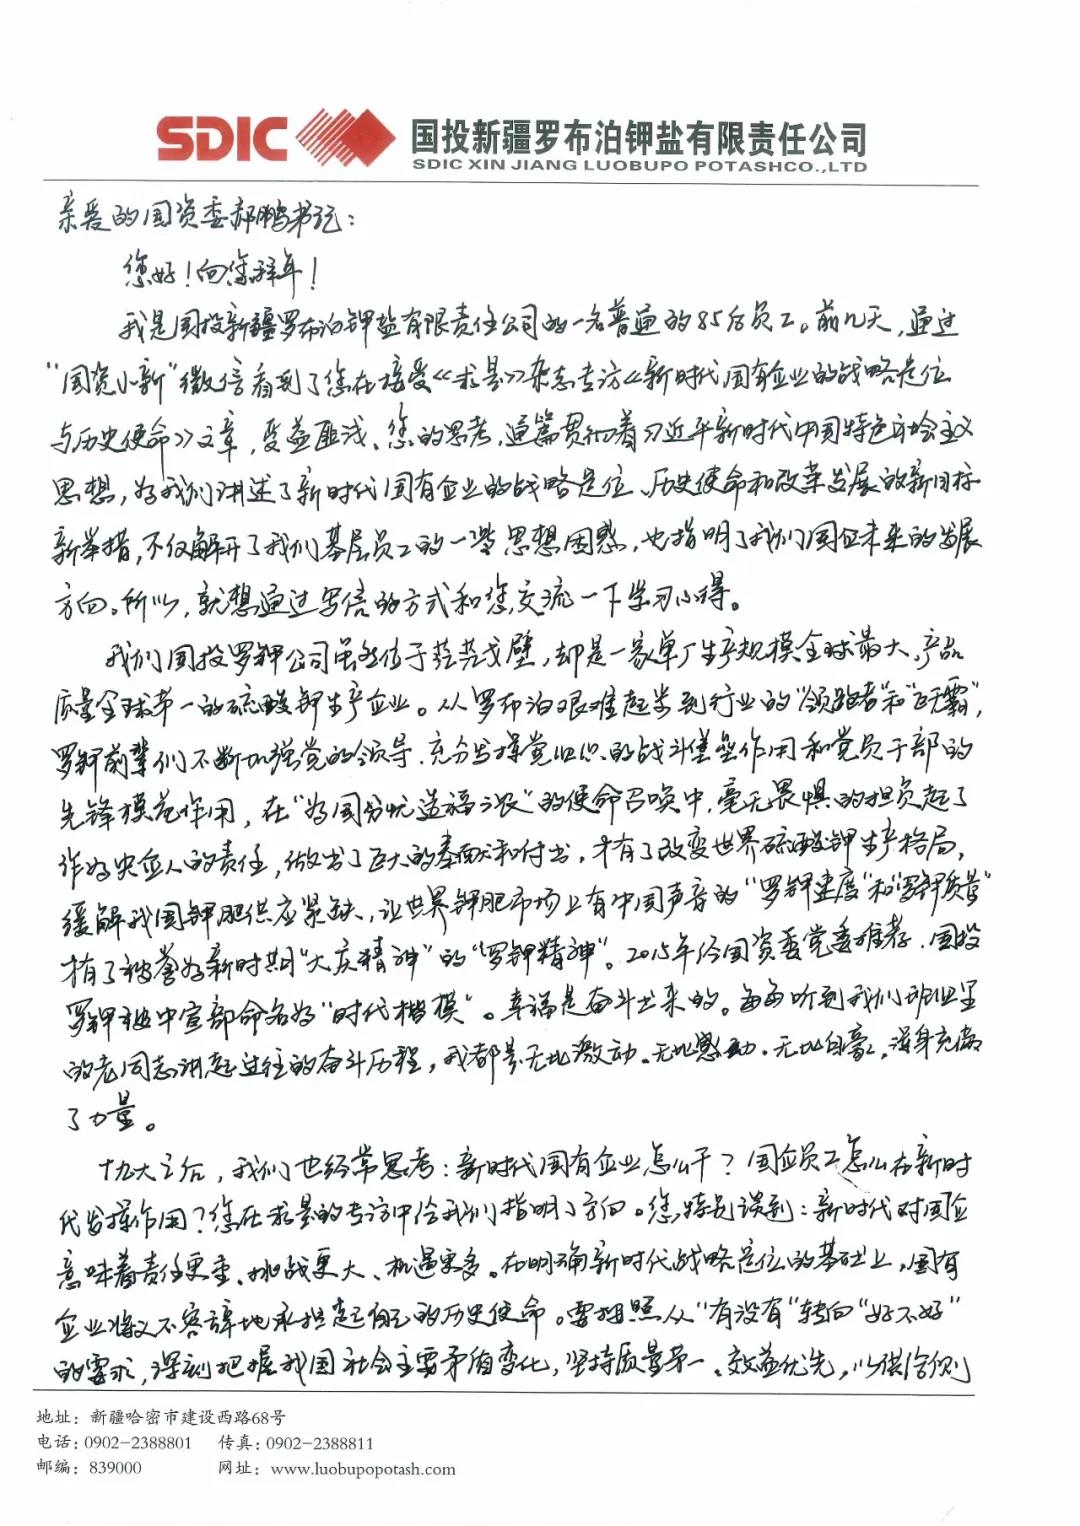 SDIC
国投新疆罗布泊钾盐有限责任公司
SDIC XIN JIANG LUOBUPO POTASHCO.,LTD
亲爱的国资委郝鹏书记：
您好！向您拜年！
我是国投新疆罗布泊钾盐有限责任公司的一名普通的85后员工。前几天，通过
“国资小新”微信看到了您在接受《求是》杂志专访《新时代国有企业的战略定位
与历史使命》文章，受益匪浅、您的思考，通篇贯彻着习近平新时代中国特色社会主义
思想，为我们讲述了新时代国有企业的战略定位、历史使命和改革发展的新目标
新举措，不仅解开了我们基层员工的一些思想困惑，也指明了我们国企未来的发展
方向。所以，就想通过写信的方式和您交流一下学习心得。
我们国投罗钾公司虽然位于茫茫戈壁，却是一家单厂生产规模全球最大、产品
质量全球第一的硫酸钾生产企业。从罗布泊艰难起步到行业的“领跑者”和“巨无霸”，
罗钾前辈们不断加强党的领导、充分发挥党组织的战斗堡垒作用和党员干部的
先锋模范作用，在“为国分忧造福三农”的使命召唤中，毫无畏惧的担负起了
作为央企人的责任，做出了巨大的奉献和付出，才有了改变世界硫酸钾生产格局，
缓解我国钾肥供应紧缺，让世界钾肥市场上有中国声音的“罗钾速度”和“罗钾质量”
才有了被誉为新时期“大庆精神”的“罗钾精神”。2015年经国资委党委推荐，国投
罗钾被中宣部命名为“时代楷模”。幸福是奋斗出来的。每每听到我们班组里
的老同志讲起过往的奋斗历程，我都是无比激动、无比感动、无比自豪，浑身充满
了力量。
十九大之后，我们也经常思考：新时代国有企业怎么干？国企员工怎么在新时
代发挥作用？您在求是的专访中给我们指明了方向。您特别谈到：新时代对国企
意味着责任更重、挑战更大、机遇更多。在明确新时代战略定位的基础上，国有
企业将义不容辞地承担起自己的历史使命。要按照从“有没有”转向“好不好”
的要求，深刻把握我国社会主要矛盾变化，坚持质量第一、效益优先，以供给侧
地址：新疆哈密市建设西路68号
电话：0902-2388801 传真：0902-2388811
邮编：839000 网址：www.luobupopotash.com